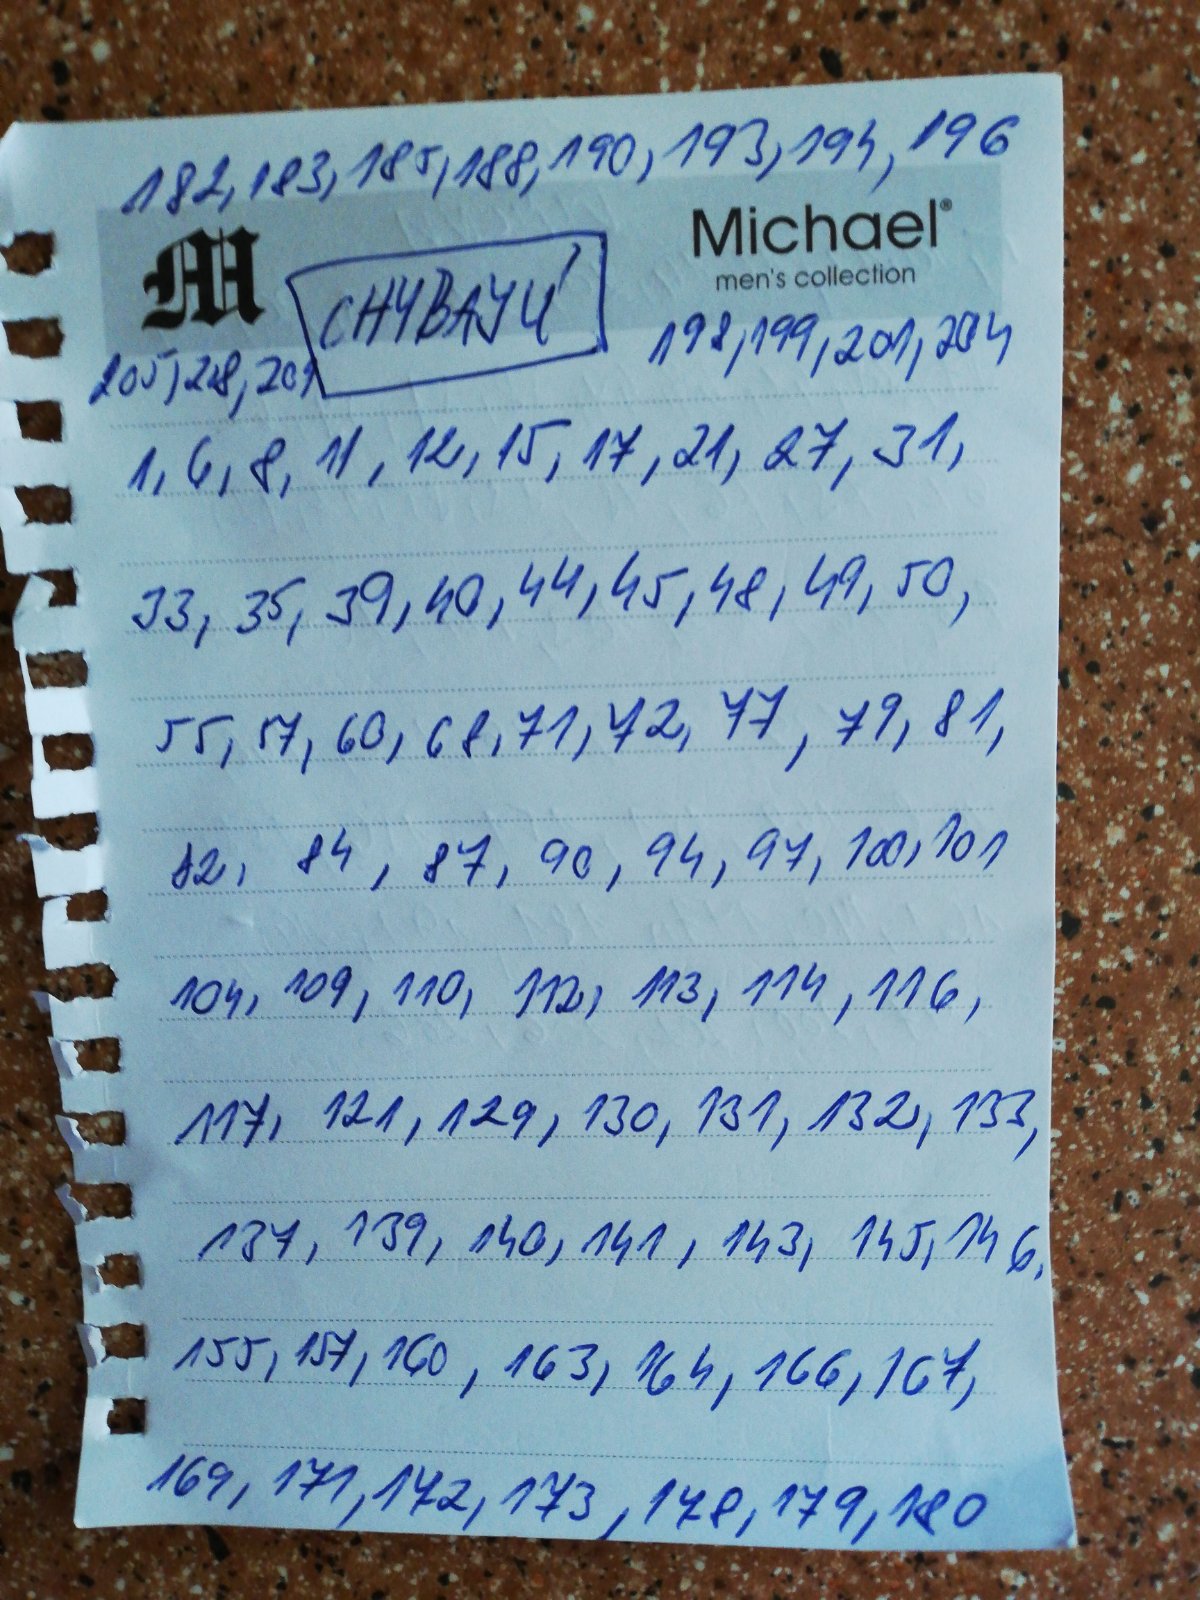 182, 183, 185, 188, 190, 193, 194, 196
M
Michael®
men's collection
CHÝBAJÚ
198, 199, 201, 204
205, 208, 209
1, 6, 8, 11, 12, 15, 17, 21, 27, 31,
33, 35, 39, 40, 44, 45, 48, 49, 50,
55, 57, 60, 68, 71, 72, 77, 79, 81,
82, 84, 87, 90, 94, 97, 100, 101
104, 109, 110, 112, 113, 114, 116,
117, 121, 129, 130, 131, 132, 133,
137, 139, 140, 141, 143, 145, 146,
155, 157, 160, 163, 164, 166, 167,
169, 171, 172, 173, 178, 179, 180